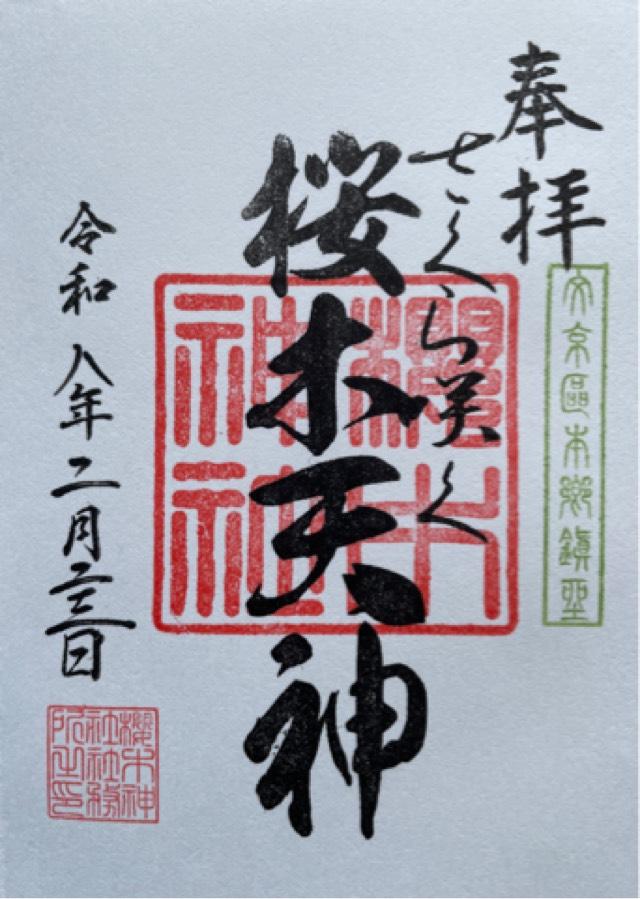 奉拝
文京區本郷鎮座
さくら咲く
桜木天神
櫻木神社
令和八年二月二三日
櫻木神
社社務
所之印